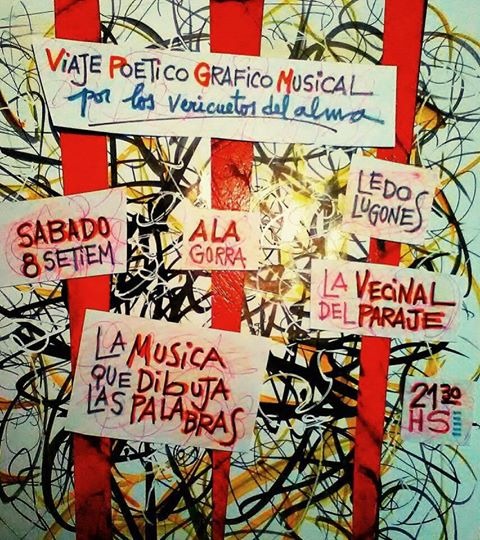 VIAJE POETICO GRAFICO MUSICAL
por los vericuetos del alma
LEDO
LUGONES
SABADO
8 SETIEM
A LA
GORRA
LA VECINAL
DEL PARAJE
LA MUSICA
QUE DIBUJA
LAS PALABRAS
21 30
HS